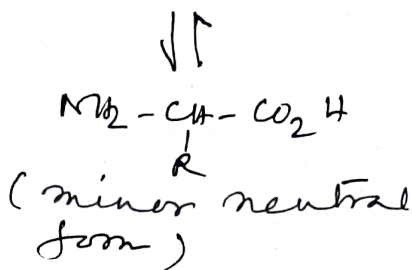 ⇌
NH₂ - CH - CO₂H
R
(minor neutral
form)